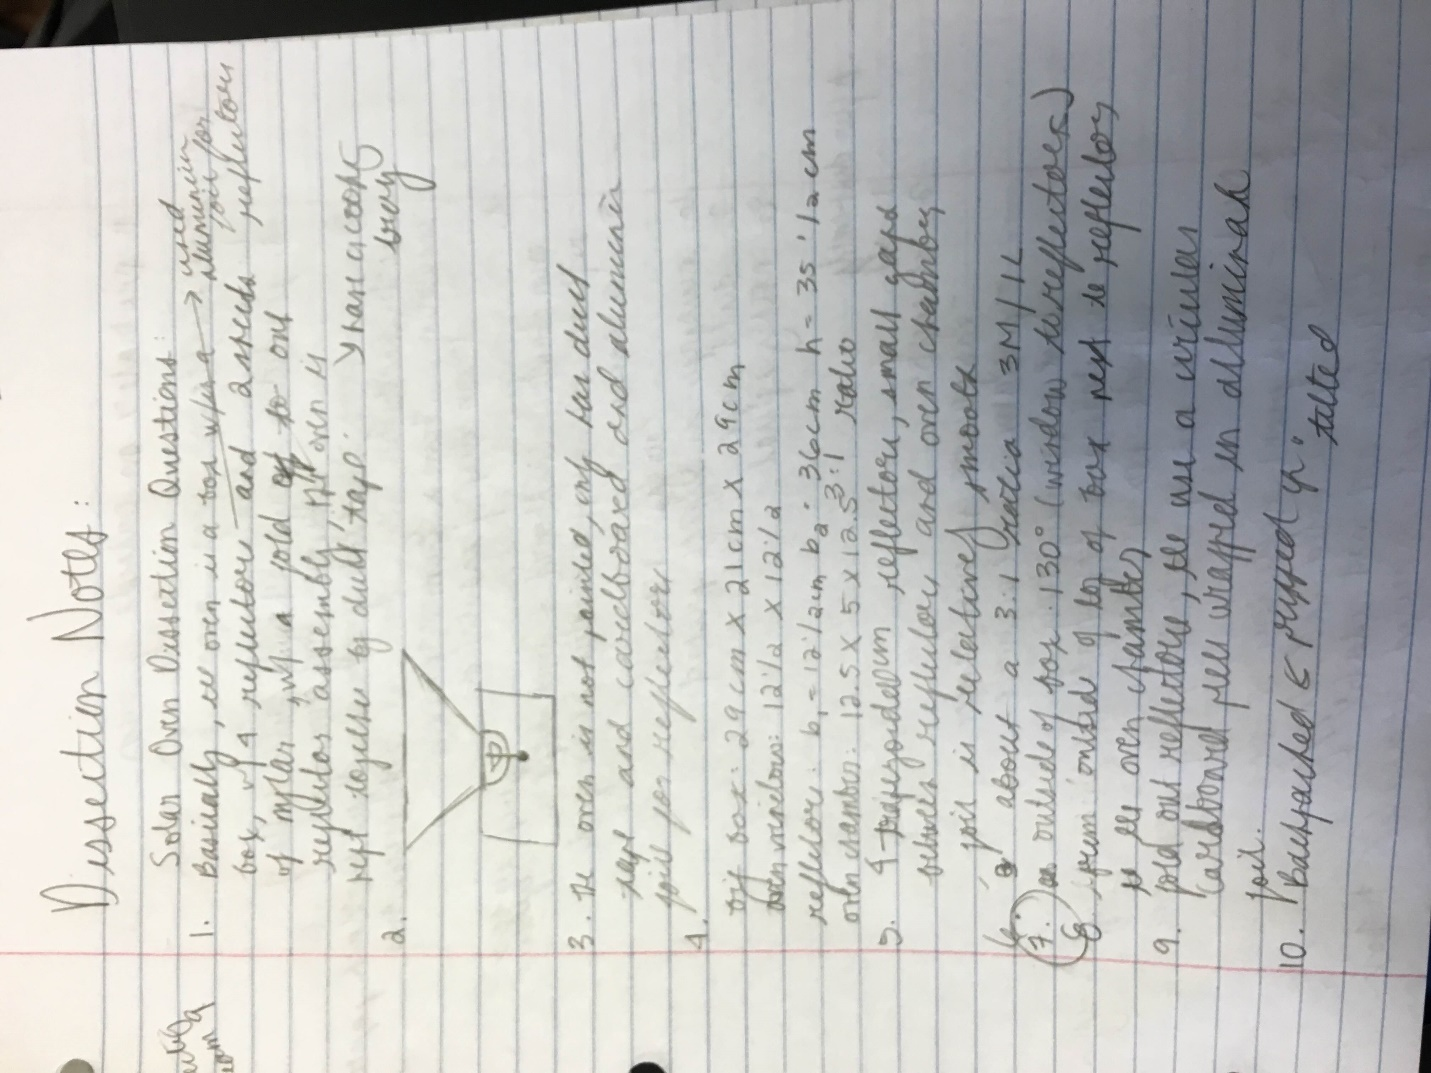 Dissection Notes:
Solar Oven Dissection Questions:
1. Basically, the oven is a box w/in a → used aluminum foil for reflectors
box, w/ 4 reflectors and 2 sheets
of mylar, w/ a fold to out
reflector assembly, the oven is
kept together by duct tape.
2.
3. The oven is not painted, only has duct
tape and cardboard and aluminum
foil for reflectors
4.
big box: 29cm x 21cm x 29cm
oven window: 12 1/2 x 12 1/2
reflectors: b1 = 12 1/2 cm b2 = 36cm h = 35 1/2 cm
oven chamber: 12.5 x 5 x 12.5 3:1 ratio
5. 4 trapezoidal reflectors, small gaps
between reflectors and oven chamber,
foil is relatively smooth
6. about a 3:1 ratio 3M/1L
7. outside of box: 130° (window to reflectors)
8. from outside of to of box next to reflectors
to the oven chamber
9. fold out reflectors, the use a circular
cardboard wrapped in alluminah
foil.
10. Backpacked ← ripped
tilted